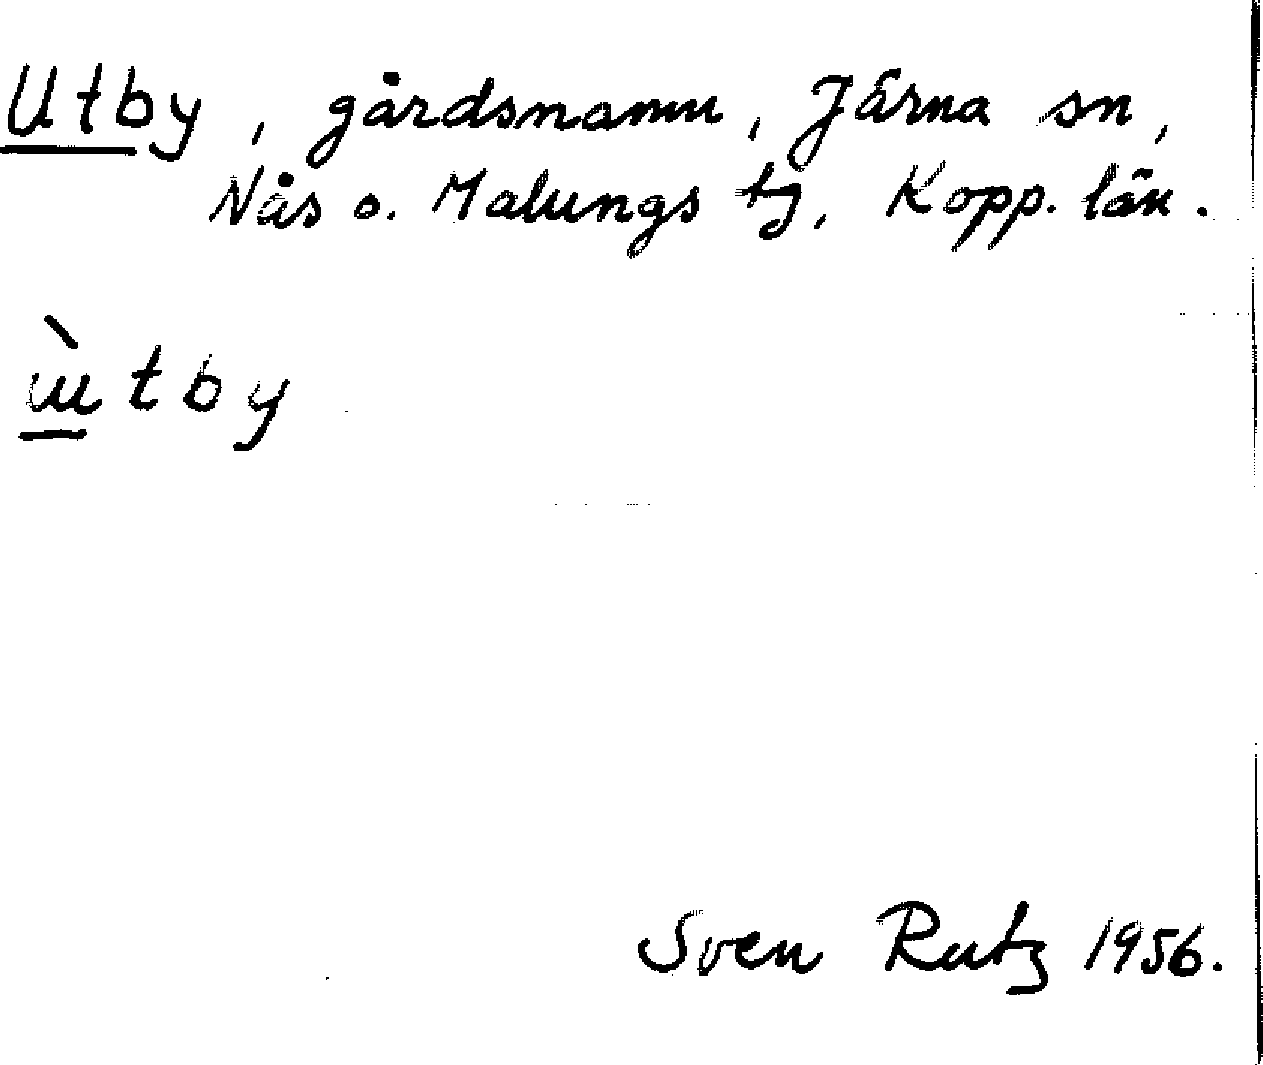 Utby, gårdsnamn, Järna sn,
Nås o. Malungs tg, Kopp. län.
ùtby
Sven Rutz 1956.